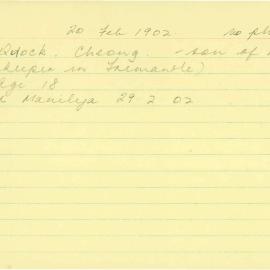 20 Feb 1902 no ph
Cheong. - son of
keeper in Fremantle)
age 18
Manilya 29 2 02